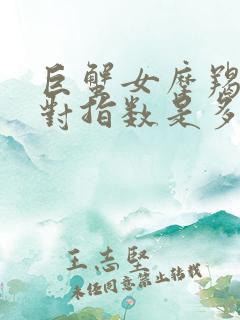 巨蟹女摩羯
對指数是多
王志堅
未经同意禁止转载